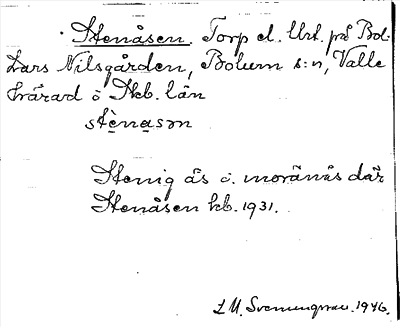 Stenåsen. Torp el. lht. på Bol.
Lars Nilsgården, Bolum s:n, Valle
härad o Skb. län
stènasn
Stenig ås o. moränås där
Stenåsen kb. 1931.
L M. Svenungsson. 1946.